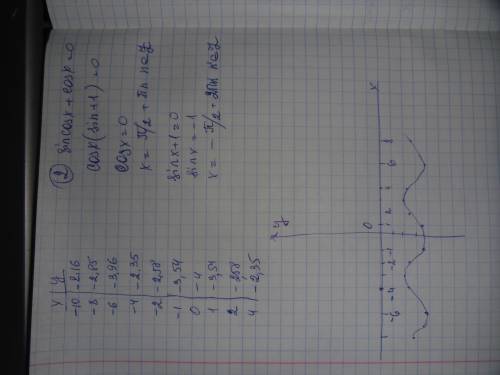 x | y
-10 | -2,16
-8 | -2,85
-6 | -3,96
-4 | -2,35
-2 | -2,58
-1 | -3,54
0 | -4
1 | -3,54
2 | -2,58
4 | -2,35
2) sin cosx + cosx = 0
cosx (sin+1) = 0
cosx = 0
x = π/2 + πn n∈Z
sinx + 1 = 0
sinx = -1
x = -π/2 + 2πn n∈Z
y
0
x
-6 -4 -2 -1 1 2 4 6 8